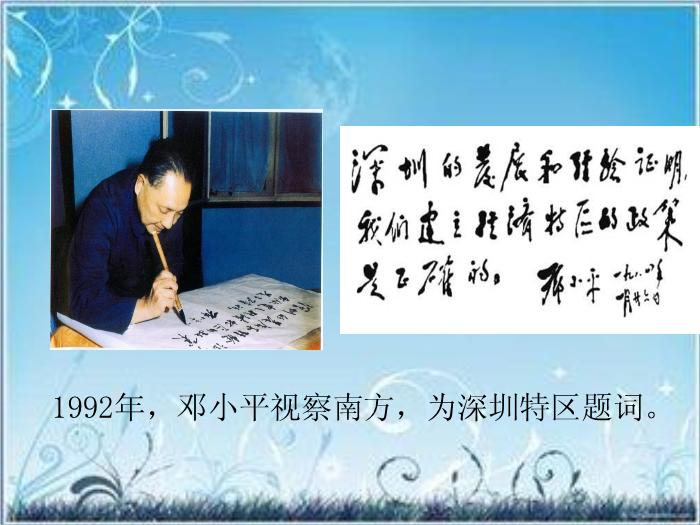 深圳的发展和经验证明,
我们建立经济特区的政策
是正确的。 邓小平 一九八四年
一月廿六日
1992年，邓小平视察南方，为深圳特区题词。